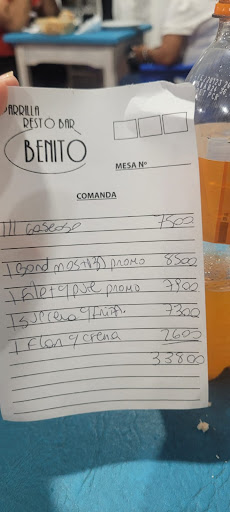 PARRILLA
RESTÓ BAR
BENITO
MESA Nº
COMANDA
III gaseosa 7500
1 promo 8500
1 filet y pure promo 7900
1 7300
1 Flan y crema 2600
33800